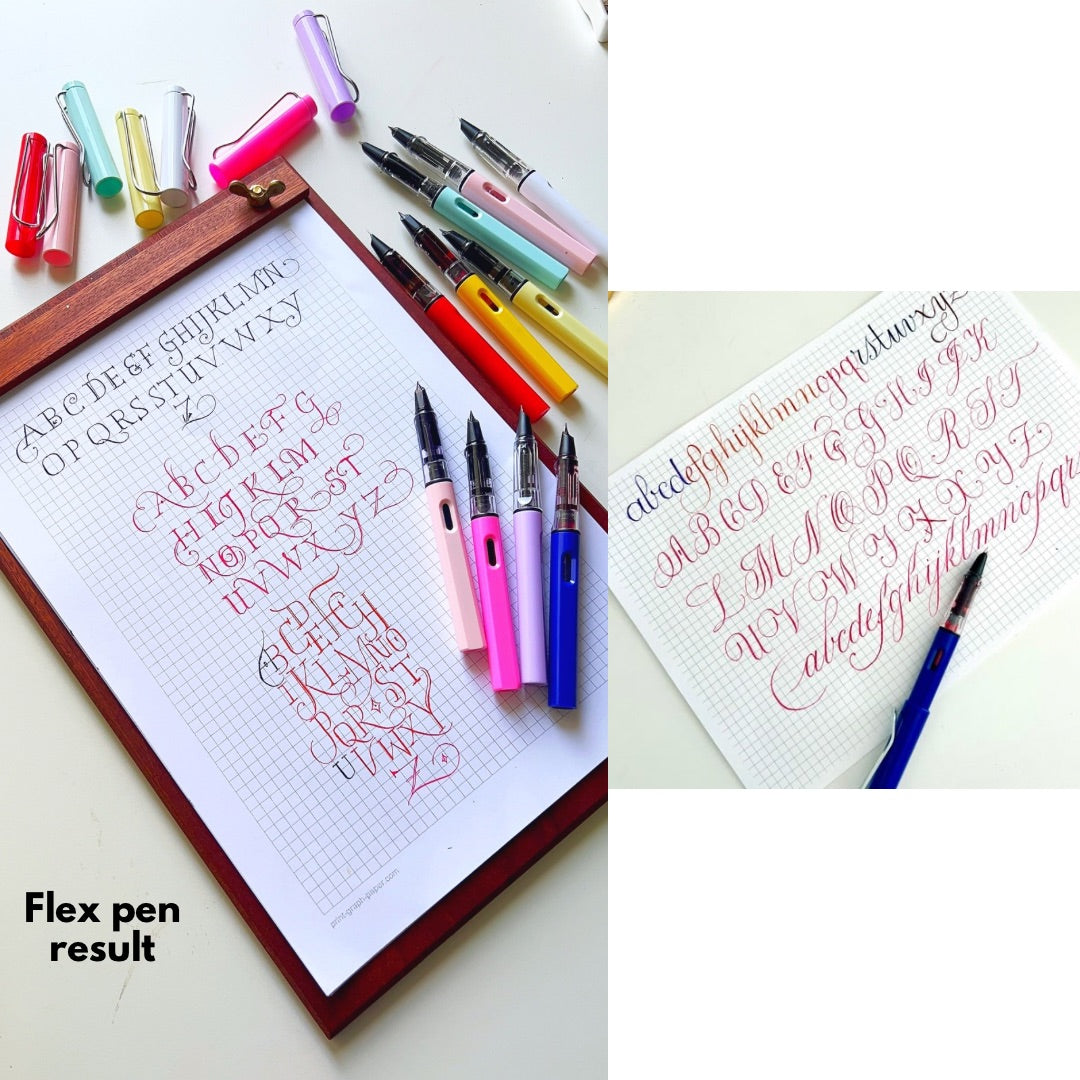 A B C D E & F G H I J K L M N
O P Q R S S T U V W X Y
Z
A B C D E F G
H I J K L M
N O P Q R S T
U V W X Y Z
D
B C E F G H
I J K L M N O
P Q R S T
U V W X Y
Z
print-graph-paper.com
Flex pen
result
abcdefghijklmnopqrstuvxyz
A B C D E F G H I J K
L M N O P Q R S T
U V W X Y Z
abcdefghijklmnopqrs